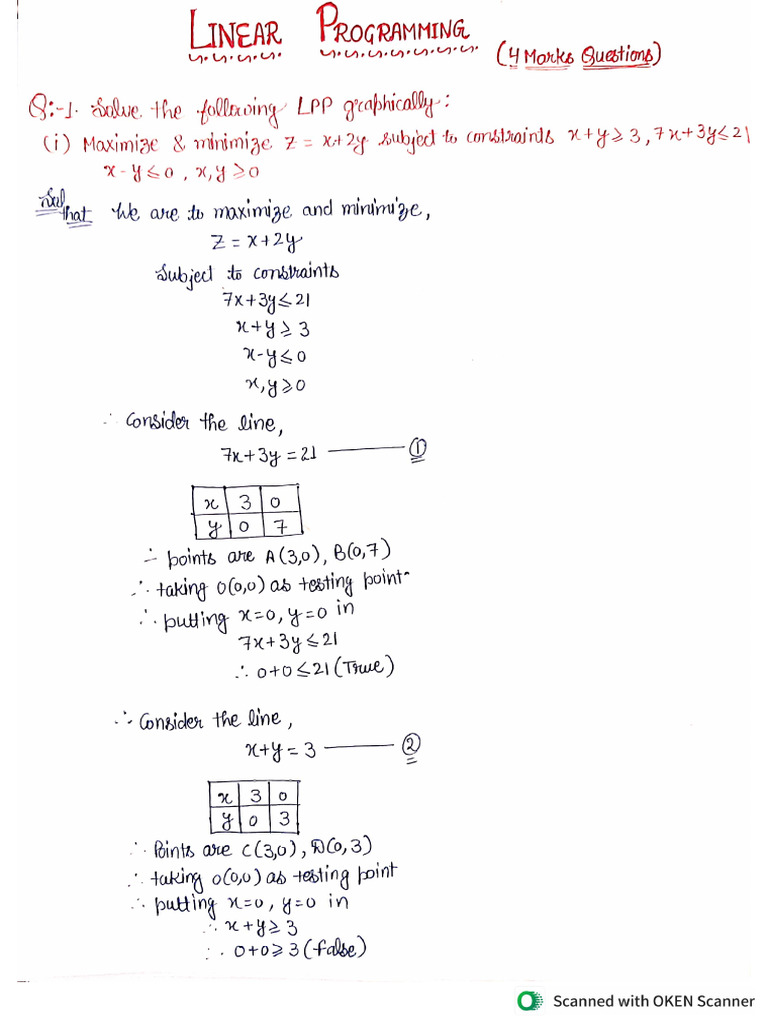 LINEAR PROGRAMMING
(4 Marks Questions)
Q:-1. Solve the following LPP graphically:
(i) Maximize & minimize Z = x+2y subject to constraints x+y≥3, 7x+3y≤21
x-y≤0, x,y≥0
Sol that We are to maximize and minimize,
Z = x+2y
Subject to constraints
7x+3y≤21
x+y≥3
x-y≤0
x,y≥0
∴ Consider the line,
7x+3y=21 ——— ①
x 3 0
y 0 7
∴ points are A(3,0), B(0,7)
∴ taking O(0,0) as testing point
∴ putting x=0, y=0 in
7x+3y≤21
∴ 0+0≤21 (True)
∴ Consider the line,
x+y=3 ——— ②
x 3 0
y 0 3
∴ Points are C(3,0), D(0,3)
∴ taking O(0,0) as testing point
∴ putting x=0, y=0 in
∴ x+y≥3
∴ 0+0≥3 (false)
Scanned with OKEN Scanner